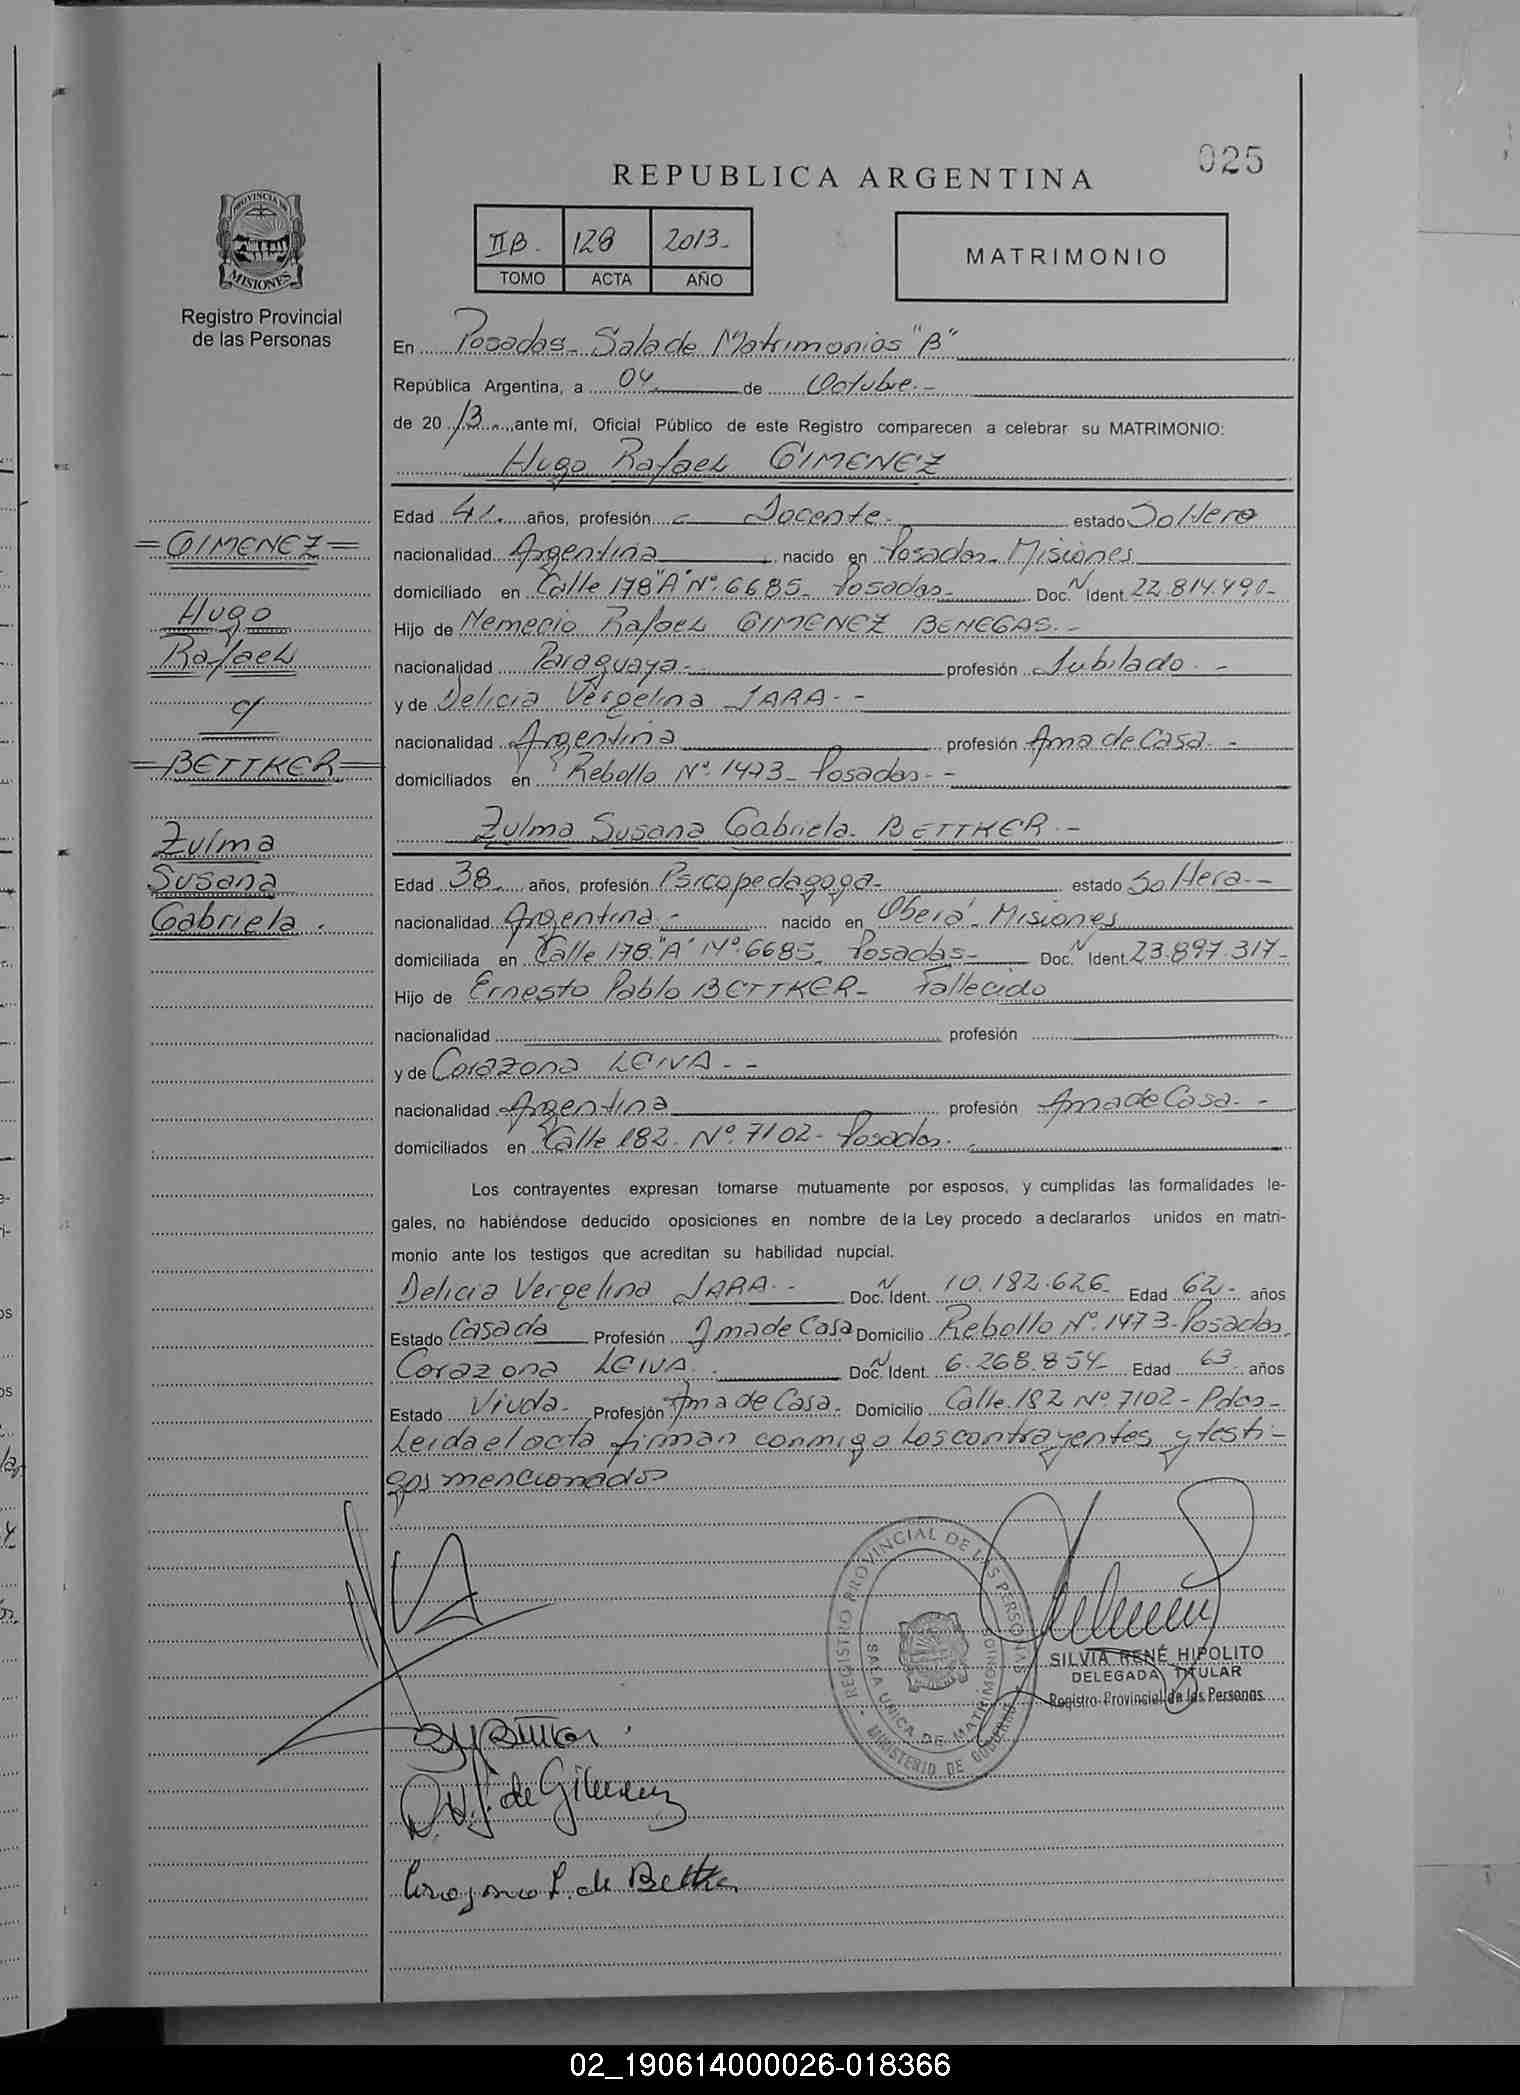 025
REPUBLICA ARGENTINA
PROVINCIA DE
MISIONES
Registro Provincial
de las Personas
IIB. 128 2013-
TOMO ACTA AÑO
MATRIMONIO
En Posadas- Sala de Matrimonios "B"
República Argentina, a 04 de Octubre.-
de 2013 ante mí, Oficial Público de este Registro comparecen a celebrar su MATRIMONIO:
Hugo Rafael GIMENEZ
Edad 41. años, profesión Docente- estado Soltero
=GIMENEZ=
nacionalidad Argentina nacido en Posadas- Misiones
domiciliado en Calle 178"A" Nº. 6685- Posadas- Doc. N Ident. 22.814.490-
Hugo
Hijo de Nemecio Rafael GIMENEZ BENEGAS.-
Rafael
nacionalidad Paraguaya.- profesión Jubilado.-
c/
y de Delicia Vergelina JARA.--
nacionalidad Argentina profesión Ama de Casa.-
=BETTKER=
domiciliados en Rebollo Nº. 1473- Posadas--
Zulma Susana Gabriela- BETTKER.-
Zulma
Susana
Edad 38. años, profesión Psicopedagoga- estado Soltera--
Gabriela.
nacionalidad Argentina.- nacido en Oberá- Misiones
domiciliada en Calle 178."A" Nº. 6685- Posadas- Doc. N Ident. 23.897.317-
Hijo de Ernesto Pablo BETTKER- Fallecido
nacionalidad profesión
y de Corazona LEIVA.--
nacionalidad Argentina profesión Ama de Casa.-
domiciliados en Calle 182. Nº. 7102- Posadas.
Los contrayentes expresan tomarse mutuamente por esposos, y cumplidas las formalidades le-
gales, no habiéndose deducido oposiciones en nombre de la Ley procedo a declararlos unidos en matri-
monio ante los testigos que acreditan su habilidad nupcial.
Delicia Vergelina JARA.- Doc. N Ident. 10.182.626 Edad 62- años
Estado Casada Profesión Ama de Casa Domicilio Rebollo Nº. 1473- Posadas.
Corazona LEIVA. Doc. N Ident. 6.268.854- Edad 63 años
Estado Viuda- Profesión Ama de Casa. Domicilio Calle 182 Nº 7102- Pdas-
Leida el acta firman conmigo Los contrayentes y testi-
gos mencionados
REGISTRO PROVINCIAL DE LAS PERSONAS
SALA UNICA DE MATRIMONIOS
MINISTERIO DE GOBIERNO
SILVIA RENÉ HIPOLITO
DELEGADA TITULAR
Registro Provincial de las Personas
D.V.J. de Gimenez
Corazona L. de Bettker
02_190614000026-018366